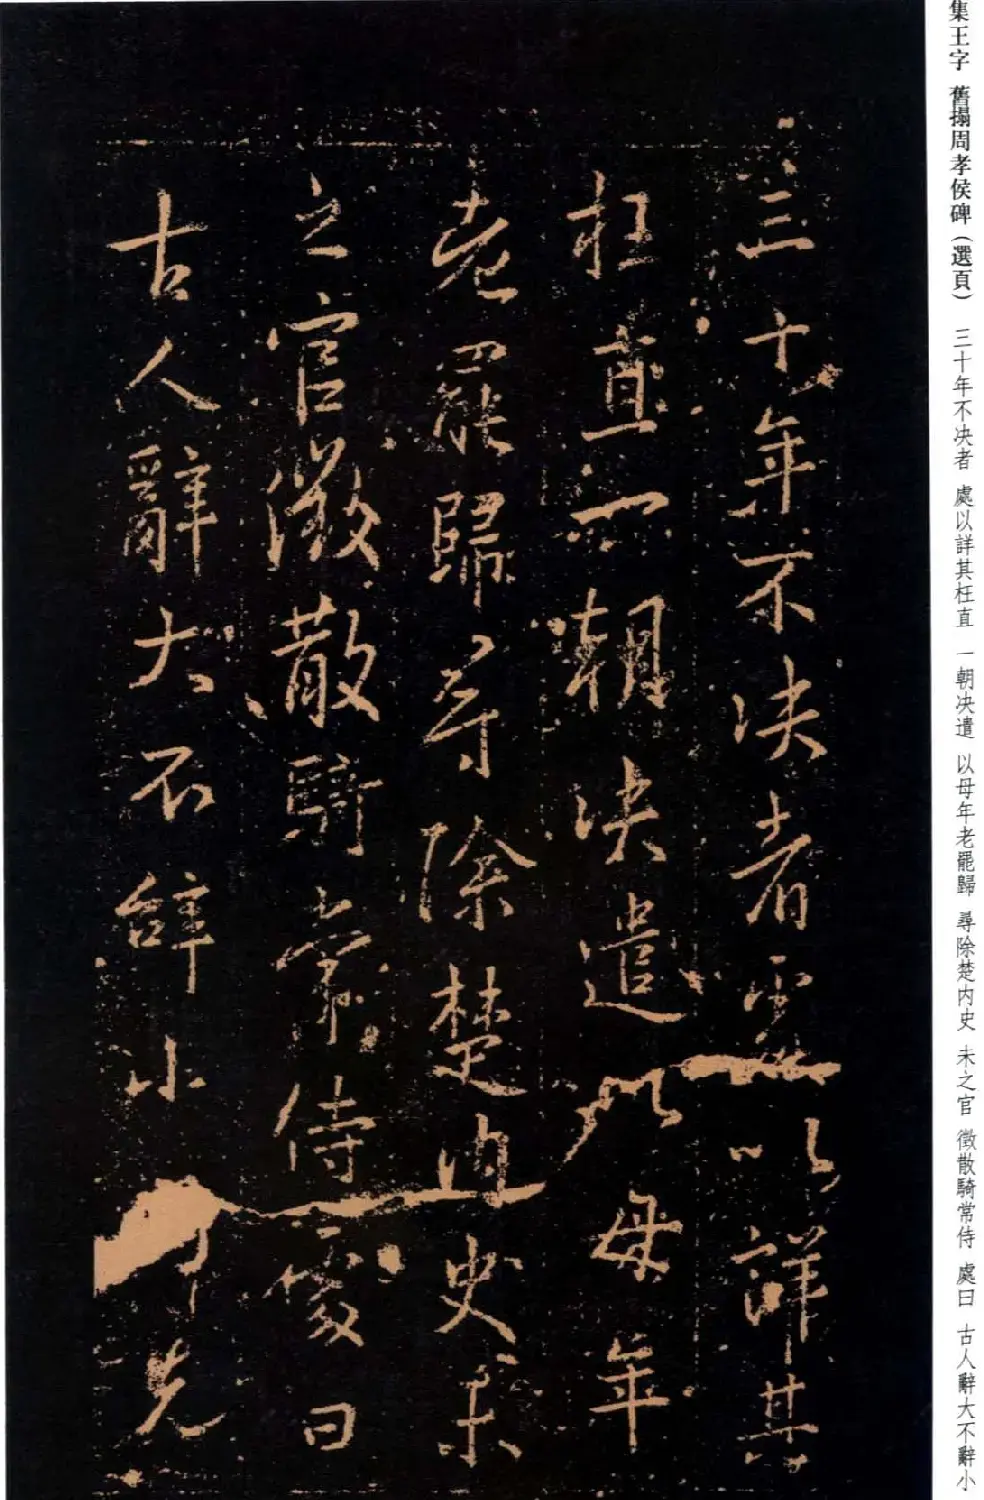 集王字 舊搨周孝侯碑（選頁） 三十年不决者 處以詳其枉直 一朝决遣 以母年老罷歸 尋除楚内史 未之官 徵散騎常侍 處曰 古人辭大不辭小
三十年不决者處以詳其
枉直一朝决遣以母年
老罷歸尋除楚内史未
之官徵散騎常侍處曰
古人辭大不辭小 先